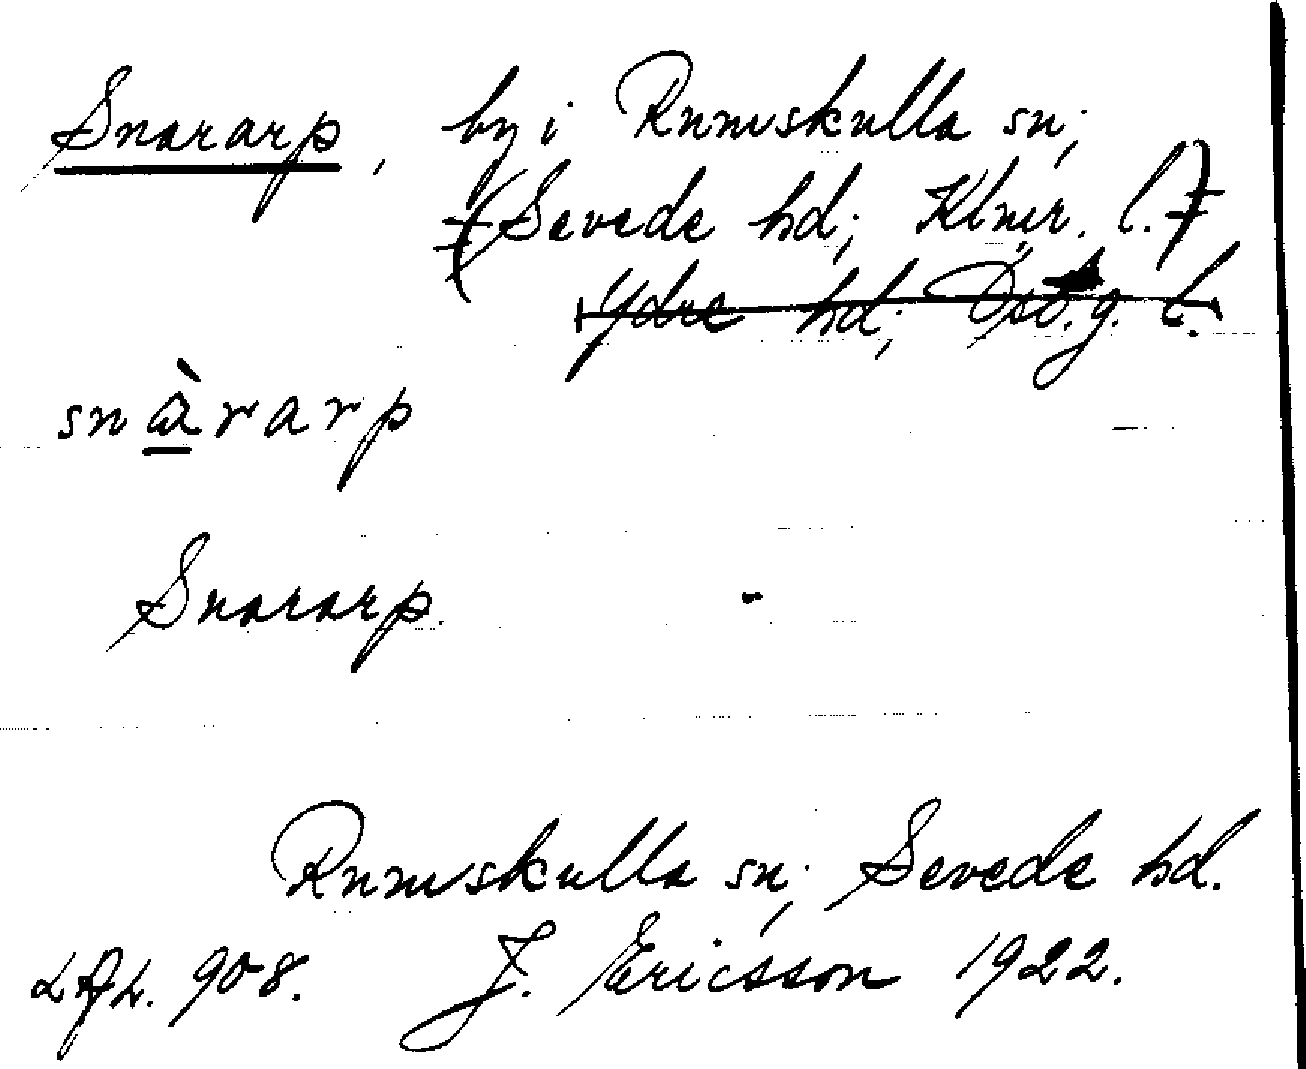 Snararp, by i Rumskulla sn;
(Sevede hd; Klmr. l.)
Ydre hd; Östg. l.
snàrarp
Snararp.
Rumskulla sn; Sevede hd.
908. J. Ericsson 1922.